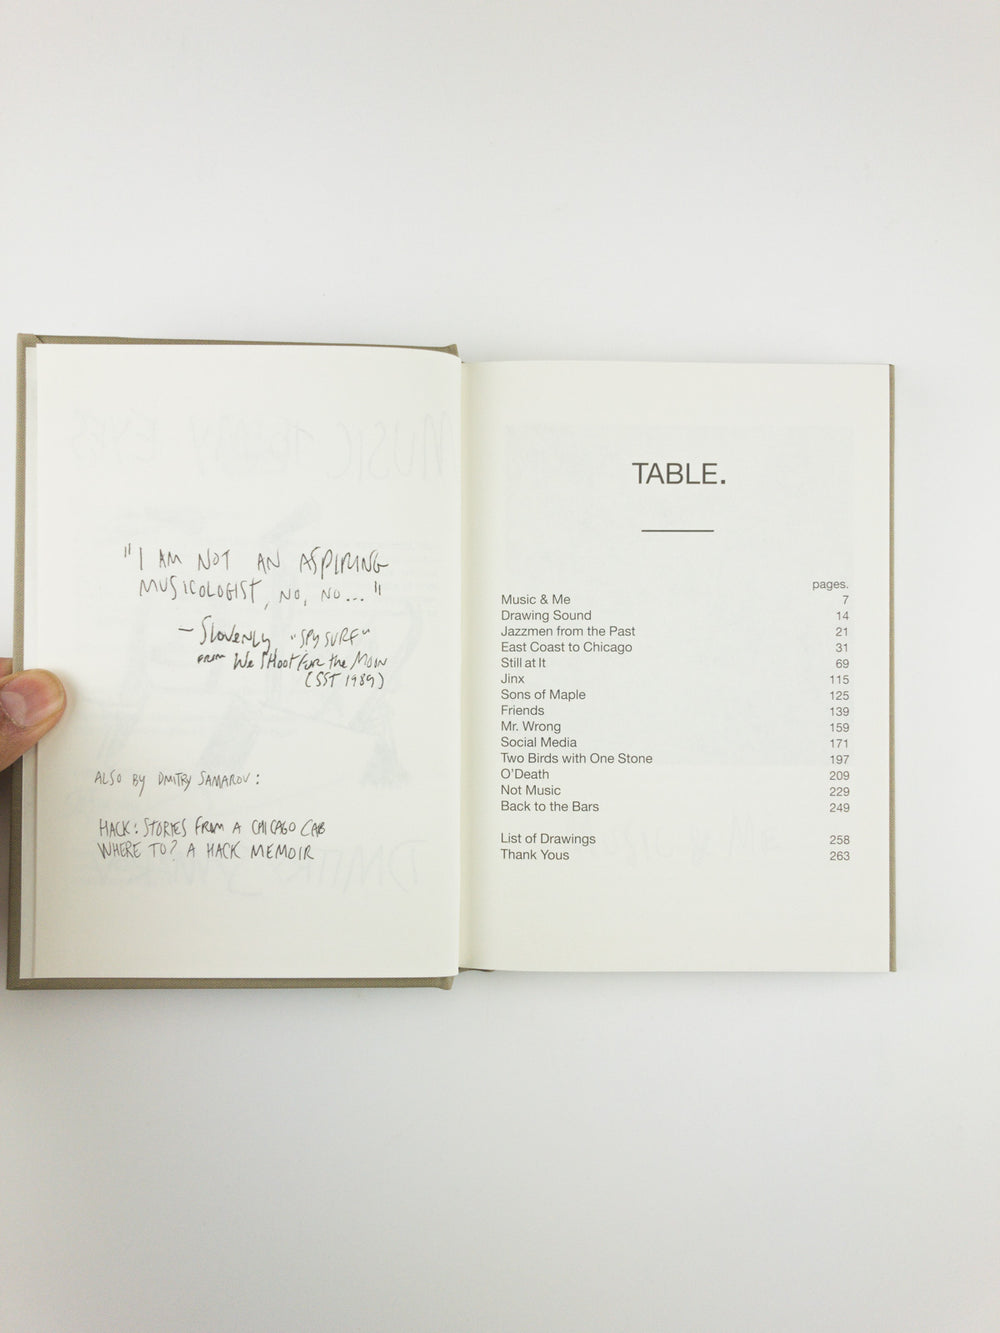 "I AM NOT AN ASPIRING
MUSICOLOGIST, NO, NO..."
— SLOVENLY "SPY SURF"
FROM We SHOOT FOR the MOON
(SST 1989)
ALSO BY DMITRY SAMAROV:
HACK: STORIES FROM A CHICAGO CAB
WHERE TO? A HACK MEMOIR
TABLE.
pages.
Music & Me 7
Drawing Sound 14
Jazzmen from the Past 21
East Coast to Chicago 31
Still at It 69
Jinx 115
Sons of Maple 125
Friends 139
Mr. Wrong 159
Social Media 171
Two Birds with One Stone 197
O'Death 209
Not Music 229
Back to the Bars 249
List of Drawings 258
Thank Yous 263